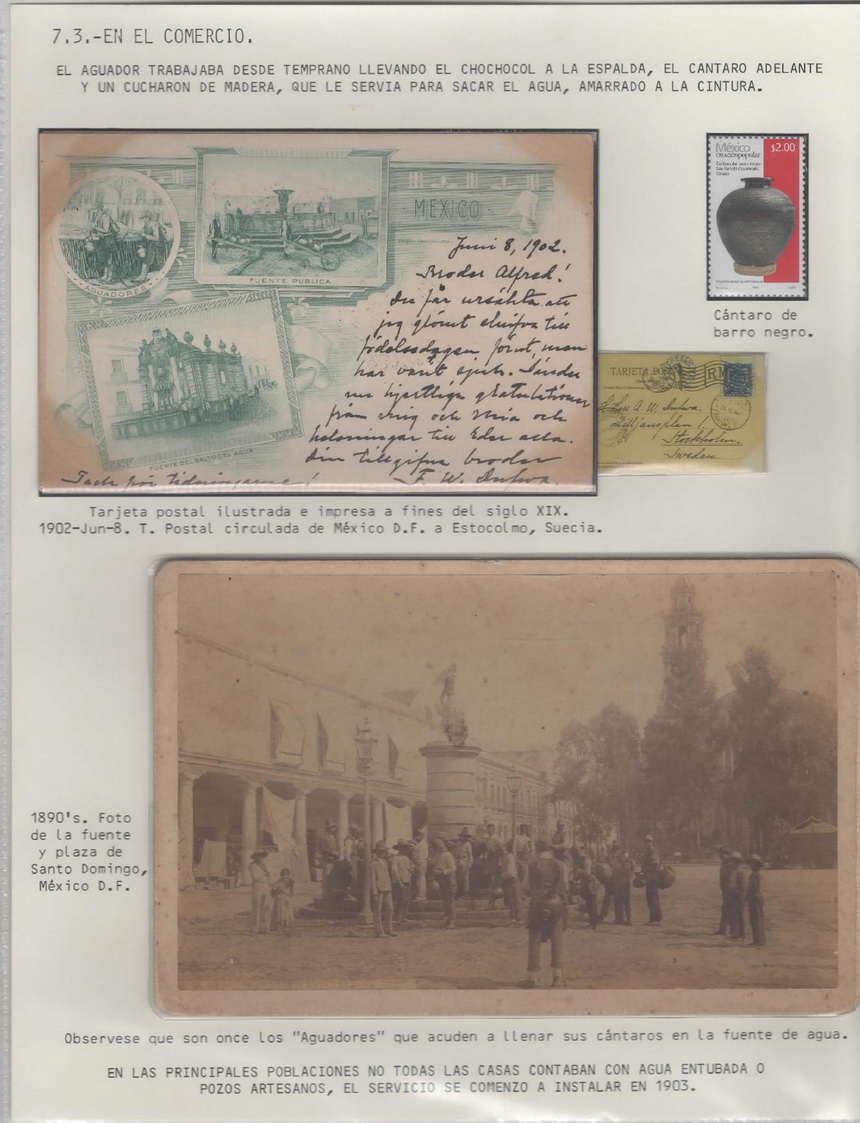 7.3.-EN EL COMERCIO.
EL AGUADOR TRABAJABA DESDE TEMPRANO LLEVANDO EL CHOCHOCOL A LA ESPALDA, EL CANTARO ADELANTE
Y UN CUCHARON DE MADERA, QUE LE SERVIA PARA SACAR EL AGUA, AMARRADO A LA CINTURA.
AGUADORES
FUENTE PUBLICA
MEXICO
FUENTE DEL SALTO DEL AGUA
Juni 8, 1902.
Broder Alfred!
Du får ursäkta att
jag glömt skrifva till
födelsedagen förut, men
har varit sjuk. Sänder
nu hjertliga gratulationer
från mig och Mia och
helsningar till Eder alla.
Din tillgifne broder
Tack för tidningarne!
F. W.
México $2.00
creación popular
Cántaro de barro negro
Cántaro de
barro negro.
TARJETA
A. W.
Lilljansplan 1
Stockholm.
Sweden.
Tarjeta postal ilustrada e impresa a fines del siglo XIX.
1902-Jun-8. T. Postal circulada de México D.F. a Estocolmo, Suecia.
1890's. Foto
de la fuente
y plaza de
Santo Domingo,
México D.F.
Observese que son once los "Aguadores" que acuden a llenar sus cántaros en la fuente de agua.
EN LAS PRINCIPALES POBLACIONES NO TODAS LAS CASAS CONTABAN CON AGUA ENTUBADA O
POZOS ARTESANOS, EL SERVICIO SE COMENZO A INSTALAR EN 1903.